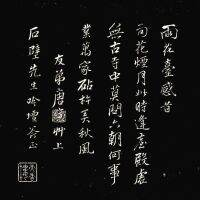 雨花臺感昔
雨花煙月此時逢臺殿虛
無古寺中莫問六朝何事
業第家砧杵又秋風
友弟唐
艸上
石壁先生吟壇答正